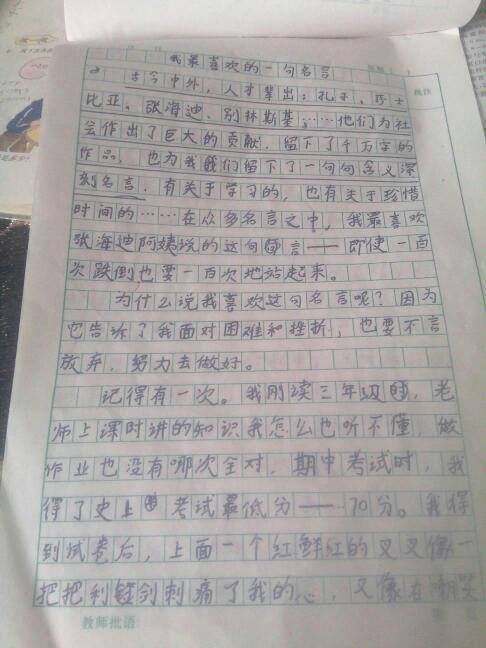 我最喜欢的一句名言
古今中外，人才辈出：孔子、莎士
比亚、张海迪、别林斯基……他们为社
会作出了巨大的贡献，留下了千万字的
作品，也为我们留下了一句句含义深
刻名言，有关于学习的，也有关于珍惜
时间的……在众多名言之中，我最喜欢
张海迪阿姨说的这句名言——即使一百
次跌倒也要一百次地站起来。
为什么说我喜欢这句名言呢？因为
它告诉了我面对困难和挫折，也要不言
放弃，努力去做好。
记得有一次。我刚读三年级时，老
师上课时讲的知识我怎么也听不懂，做
作业也没有哪次全对，期中考试时，我
得了史上考试最低分——70分。我得
到试卷后，上面一个红鲜红的叉叉像一
把把利剑刺痛了我的心，又像在嘲笑
教师批语：